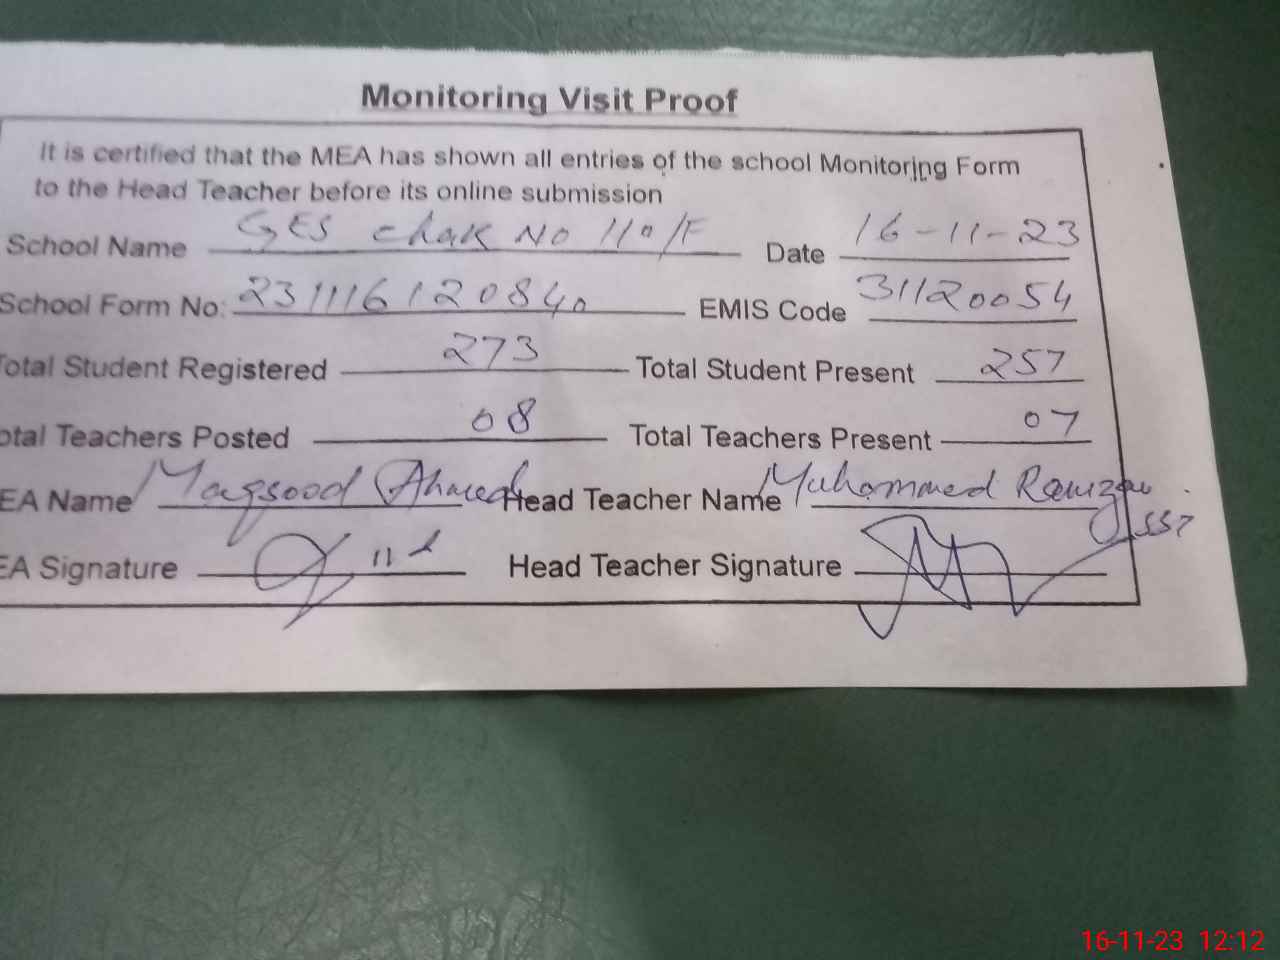 Monitoring Visit Proof
It is certified that the MEA has shown all entries of the school Monitoring Form
to the Head Teacher before its online submission
School Name GES chak No 110/F Date 16-11-23
School Form No: 231116120840 EMIS Code 31120054
Total Student Registered 273 Total Student Present 257
otal Teachers Posted 08 Total Teachers Present 07
EA Name Maqsood Ahmed Head Teacher Name Muhammad Ramzan
SST
EA Signature Head Teacher Signature
16-11-23 12:12